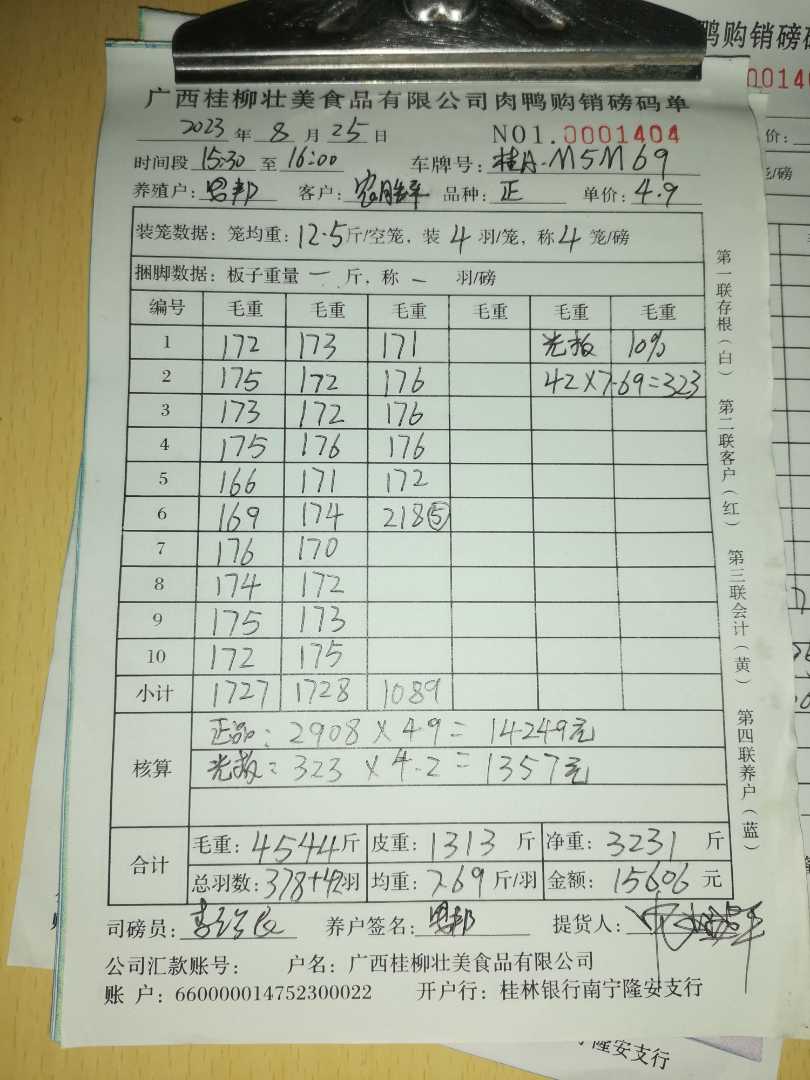 广西桂柳壮美食品有限公司肉鸭购销磅码单
2023 年 8 月 25 日 NO1.0001404
时间段 15:30 至 16:00 车牌号: 桂A·M5M69
养殖户: 邦 客户: 品种: 正 单价: 4.9
装笼数据: 笼均重: 12.5 斤/空笼, 装 4 羽/笼, 称 4 笼/磅
捆脚数据: 板子重量 一 斤, 称 一 羽/磅
编号 毛重 毛重 毛重 毛重 毛重 毛重
1 172 173 171 光板 10%
2 175 172 176 42×7.69=323
3 173 172 176
4 175 176 176
5 166 171 172
6 169 174 218⑤
7 176 170
8 174 172
9 175 173
10 172 175
小计 1727 1728 1089
核算
正品: 2908 × 4.9 = 14249元
光板: 323 × 4.2 = 1357元
合计
毛重: 4544 斤 皮重: 1313 斤 净重: 3231 斤
总羽数: 378+42 羽 均重: 7.69 斤/羽 金额: 15606 元
司磅员: 李 良 养户签名: 邦 提货人:
公司汇款账号: 户名: 广西桂柳壮美食品有限公司
账 户: 660000014752300022 开户行: 桂林银行南宁隆安支行
第一联存根(白) 第二联客户(红) 第三联会计(黄) 第四联养户(蓝)
鸭购销磅
00140
价:
/磅
隆安支行